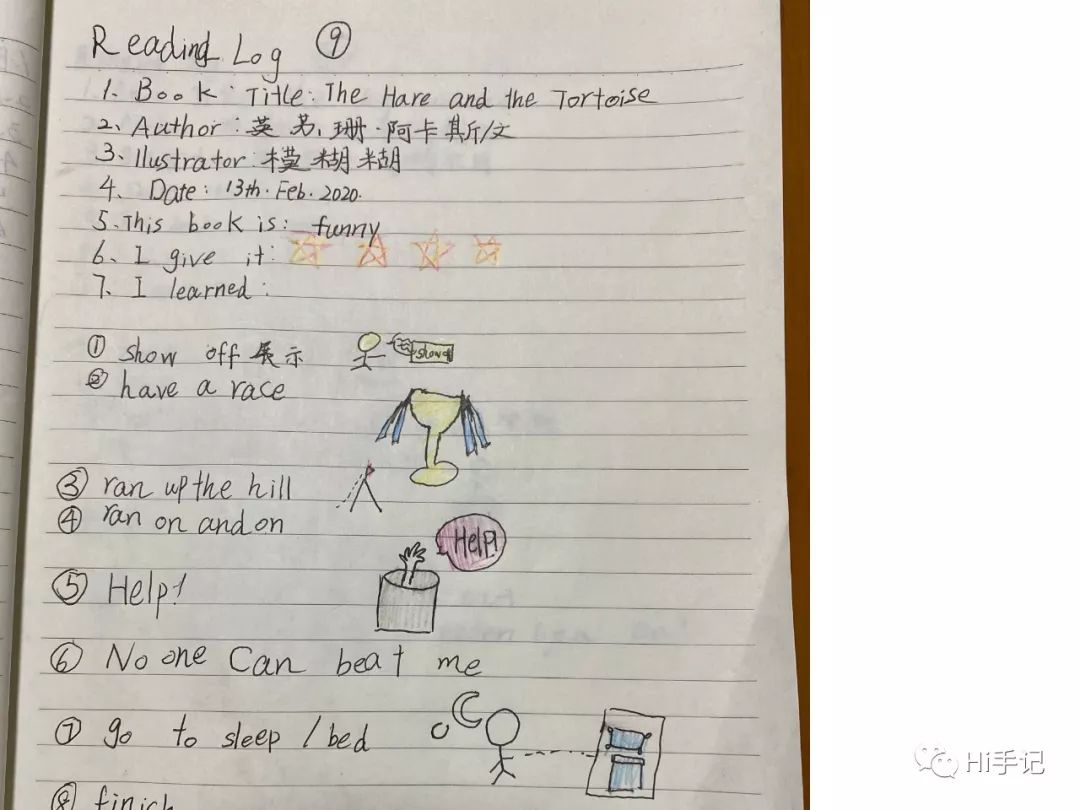 Reading Log ⑨
1. Book Title: The Hare and the Tortoise
2、Author: 英 苏珊·阿卡斯/文
3、Ilustrator: 模糊糊
4、Date: 13th. Feb. 2020.
5.This book is: funny
6、I give it:
7、I learned:
① show off 展示
show
② have a race
③ ran up the hill
④ ran on and on
Help!
⑤ Help!
⑥ No one Can beat me
⑦ go to sleep / bed
⑧ finish
Hi手记